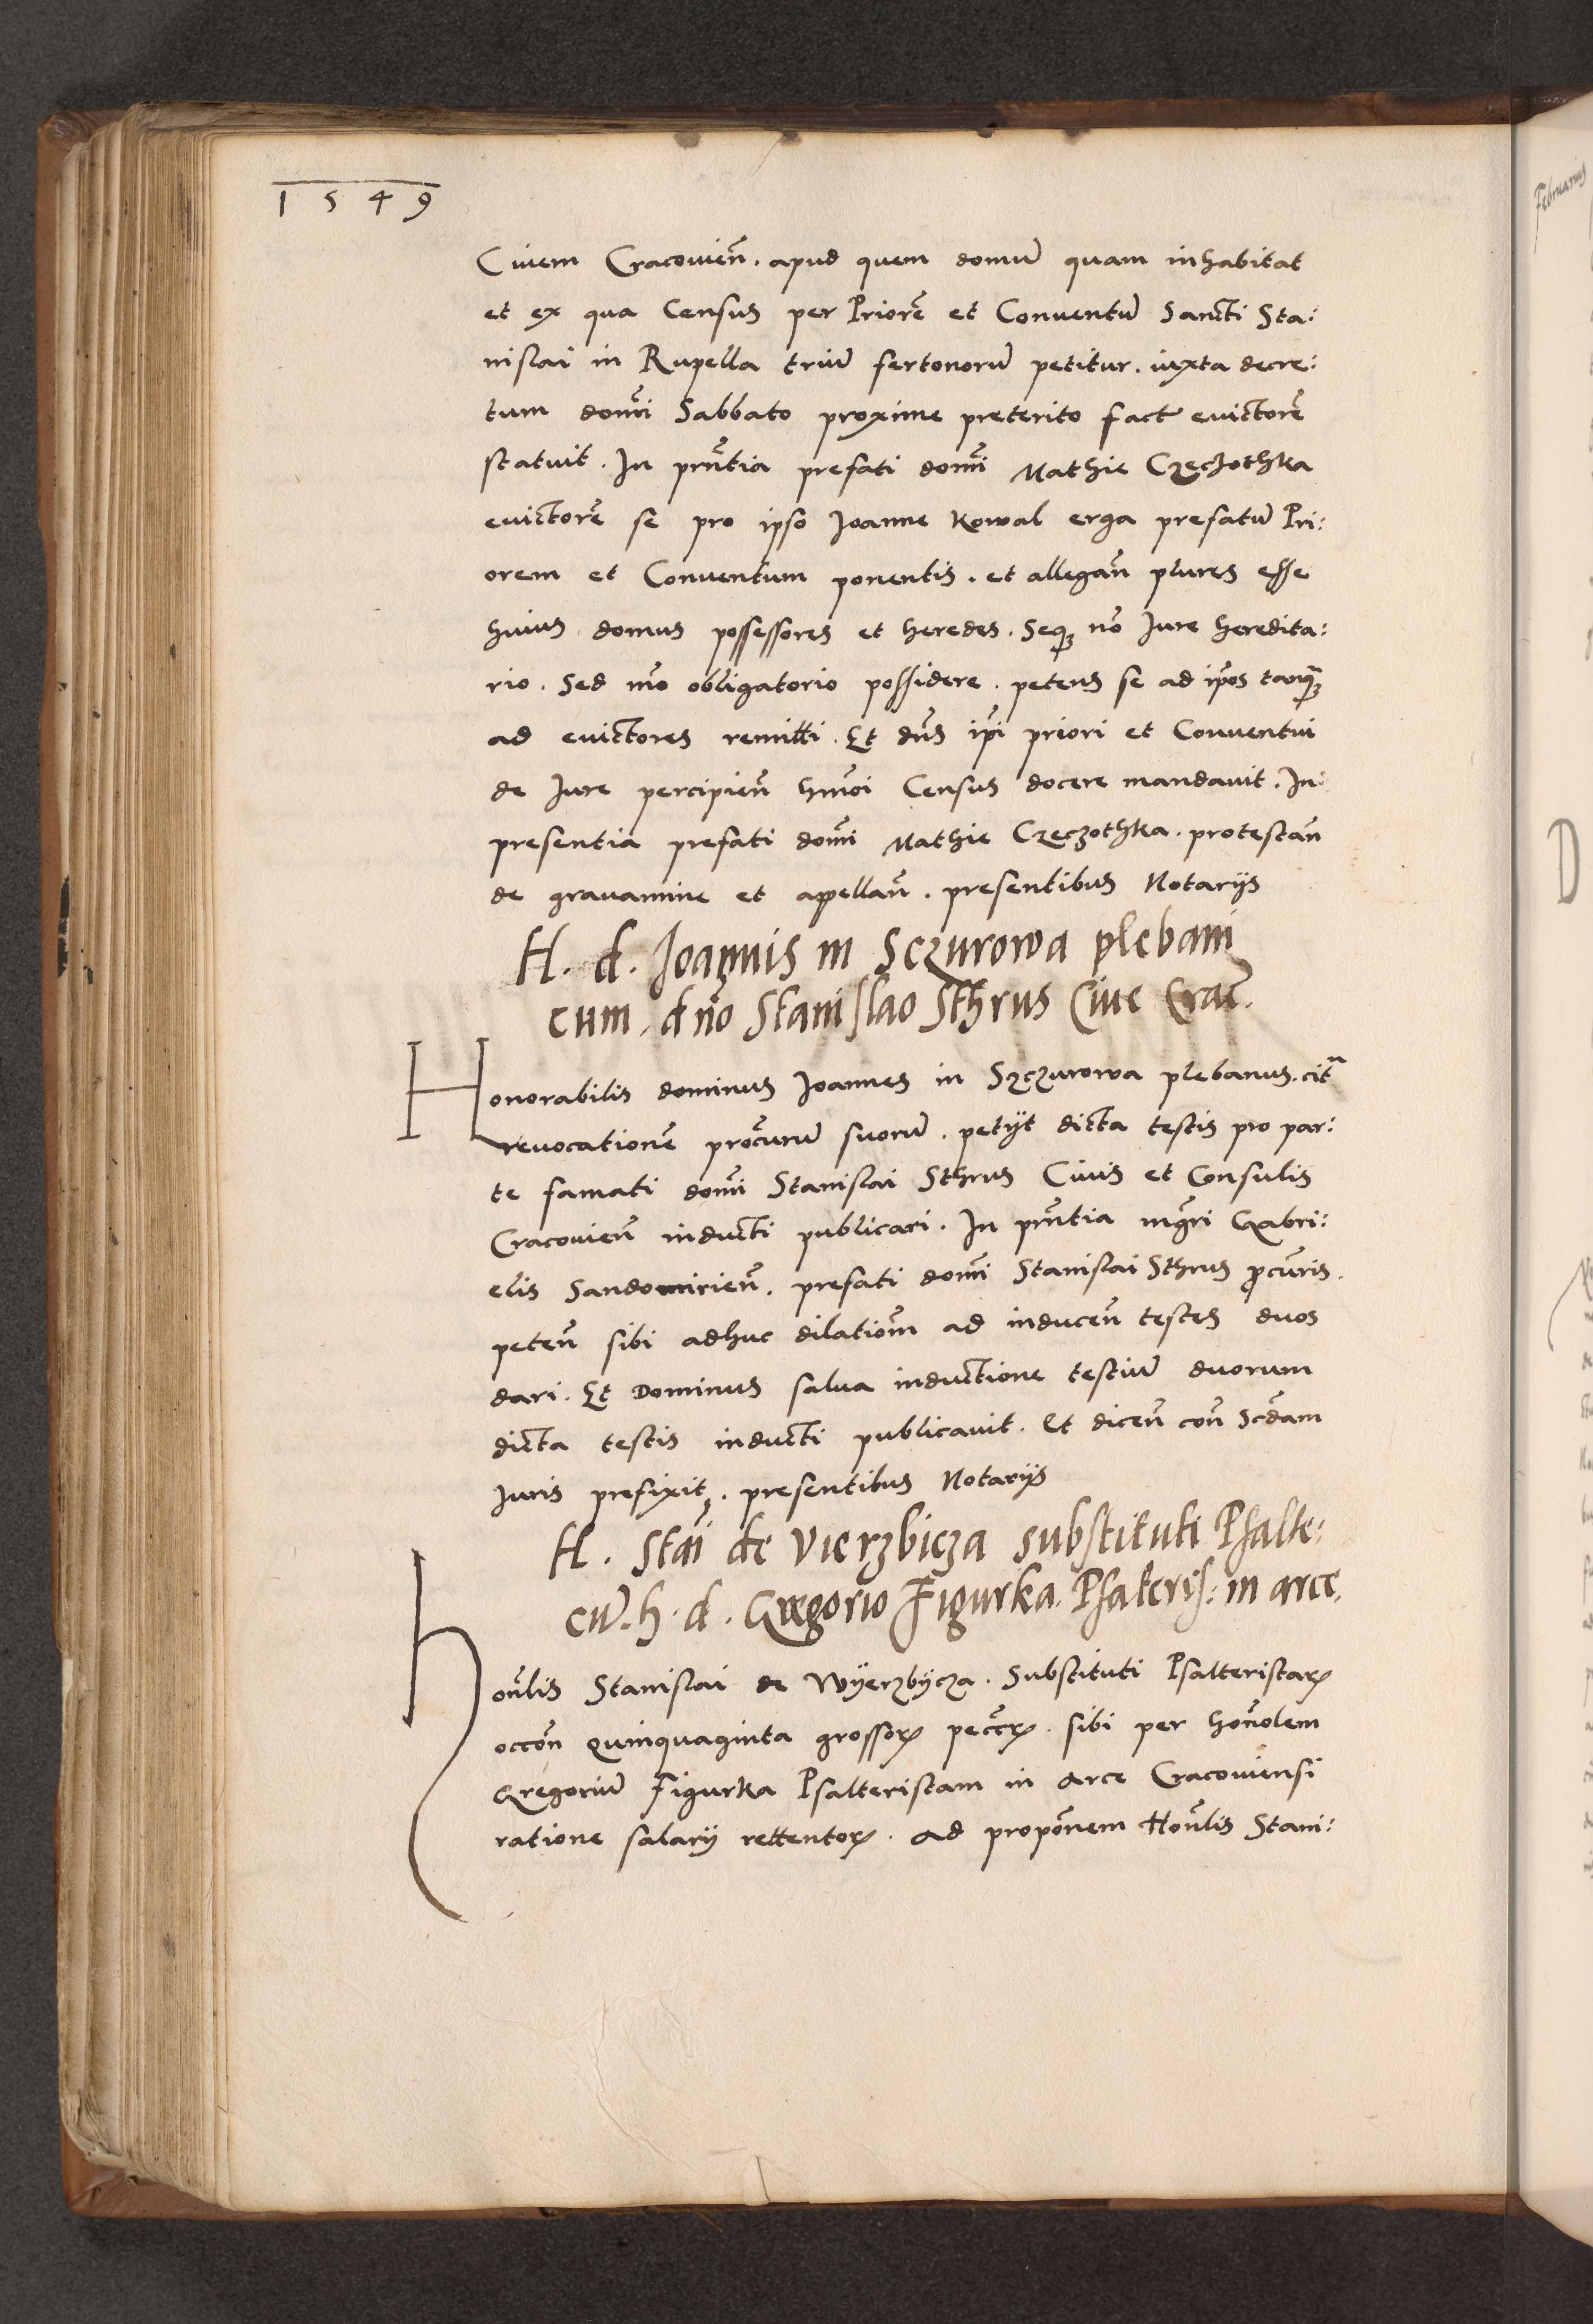 1549
Ciuem Cracouien̄. apud quem domū quam inhabitat
et ex qua Census per Priorē et Conuentū Sancti Sta:
nislai in Rupella triū fertonorū petitur. iuxta decre:
tum domī Sabbato proxime preterito fact euictorē
statuit. In prn̄tia prefati domī Mathie Czeczothka
euictorē se pro ipso Joanne Kowal erga prefatū Pri:
orem et Conuentum ponentis. et allegan̄ plures esse
huius domus possessores et heredes. Seq3 nō Jure heredita:
rio. Sed mō obligatorio possidere. petens se ad ip̄os tanq̄3
ad euictores remitti. Et dn̄s ip̄i priori et Conuentui
de Jure percipien̄ hmōi Census docere mandauit. In
presentia prefati domī Mathie Czeczothka. protestan̄
de grauamine et appellan̄. presentibus Notarijs
H. d. Joannis in Sczurowa plebani
cum. dn̄o Stanislao Sthrus Ciue Crac̄.
Honorabilis dominus Joannes in Szczurowa plebanus. citr̄
reuocationē procurū suorū. petijt dicta testis pro par:
te famati domī Stanislai Sthrus Ciuis et Consulis
Cracouien̄ inducti publicari. In prn̄tia mgr̄i Gabri:
elis Sandomirien̄. prefati domī Stanislai Sthrus p̄curis.
peten̄ sibi adhuc dilationē ad inducen̄ testes duos
dari. Et Dominus salua inductione testiū duorum
dicta testis inducti publicauit. Et dicen̄ con̄ Scd̄am
Juris prefixit. presentibus Notarijs
H. Stāi de Vierzbicza substituti Psalte:
cū. h. d. Gregorio Figurka. Psalteris: in arce.
honl̄is Stanislai de Wyerzbycza. Substituti Psalteristarꝝ
occōn quinquaginta grossorꝝ peccrꝝ. sibi per honōlem
Gregoriū Figurka Psalteristam in Arce Cracouiensi
ratione salarij rettentorꝝ. Ad propōnem Honl̄is Stani:
Februarius
D